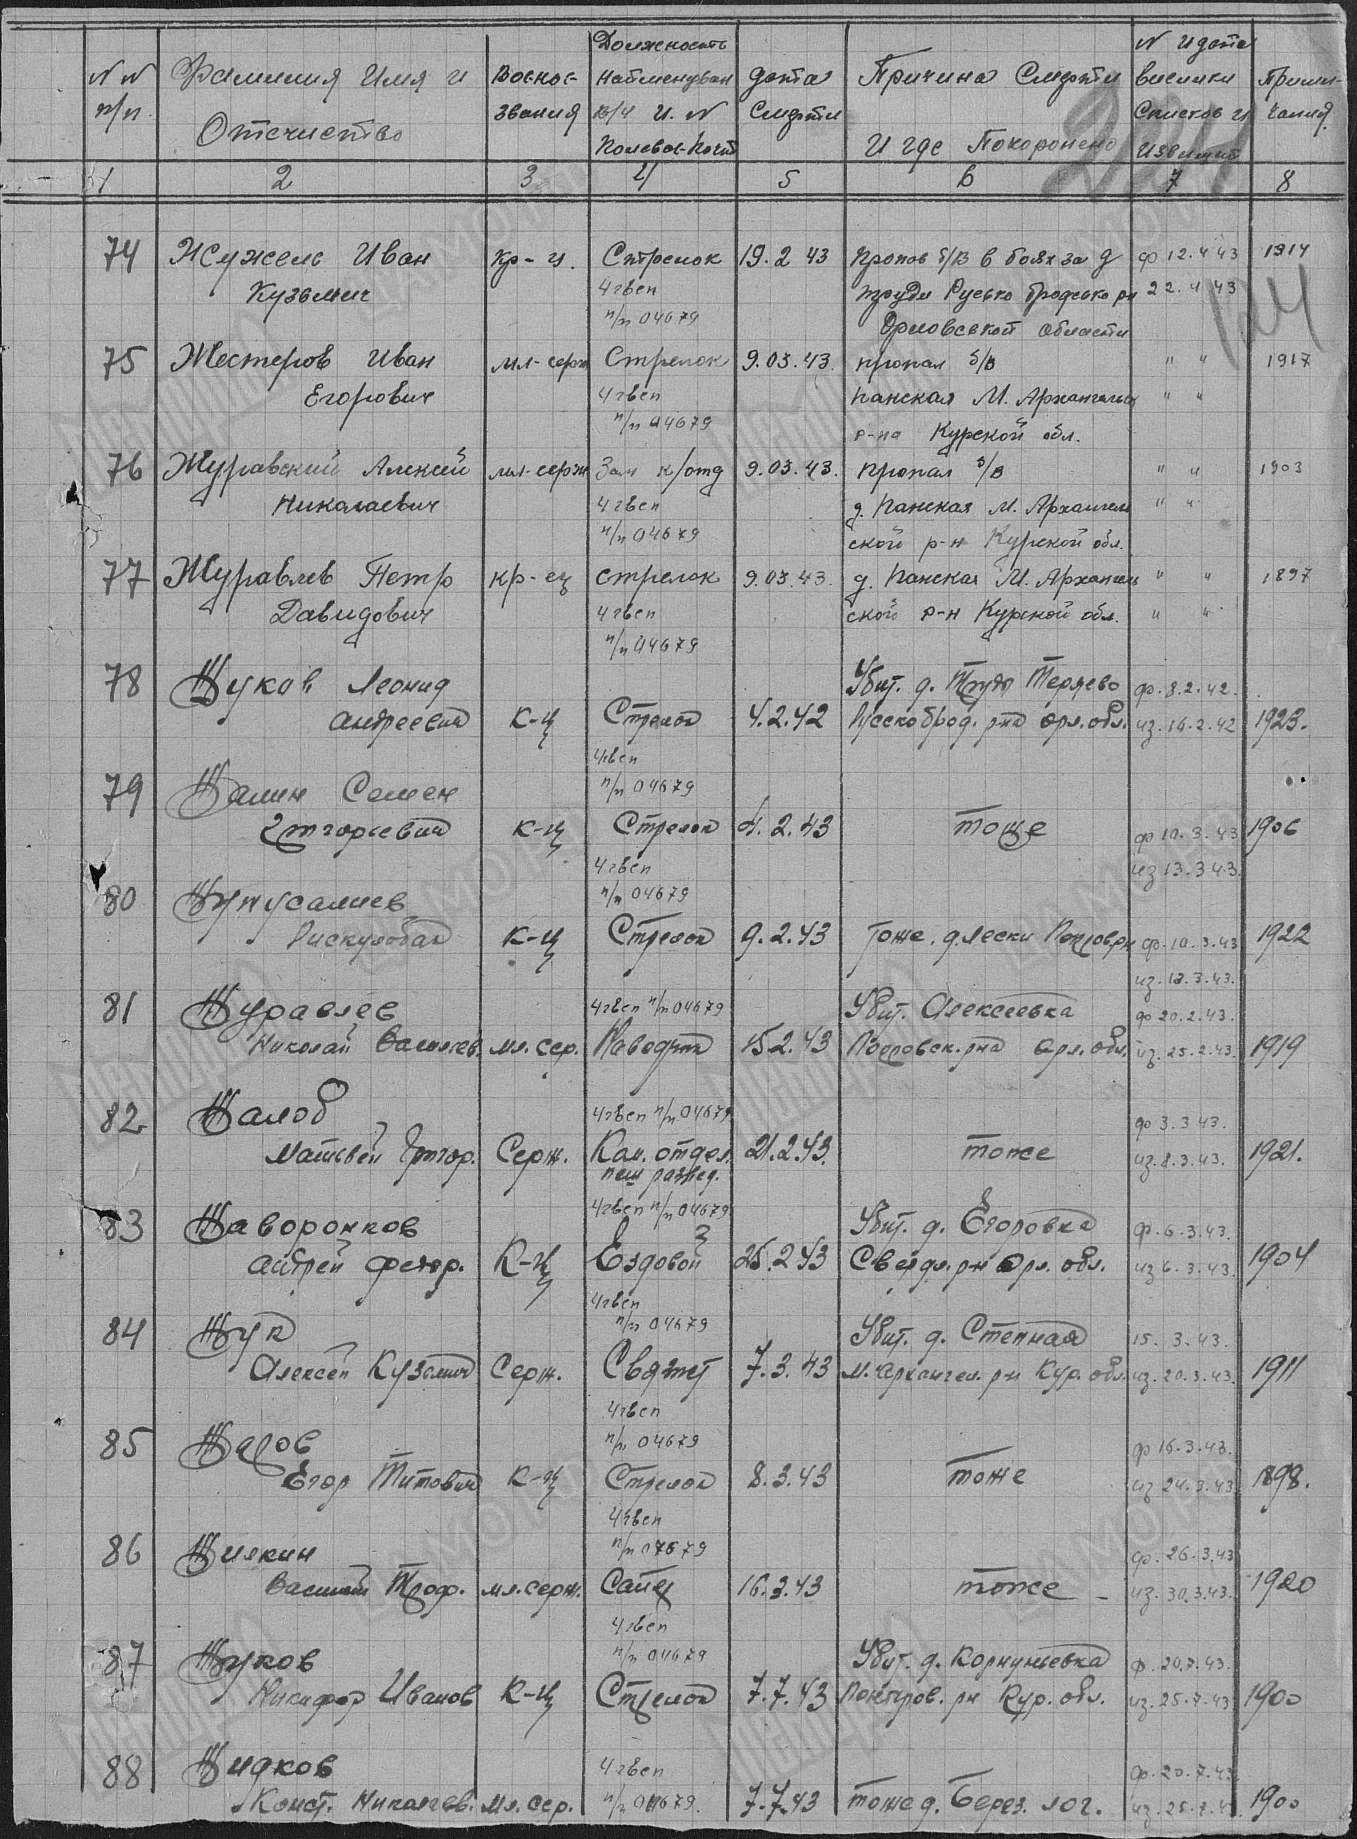 N N п/п. Фамилия Имя и Отечиство Воено-звания Должность Наименован в/ч и N Полевой Почт Дата Смерти Причина Смерти и где Покоронено N и дата высилки Списков и Извищит Приме-чания
1 2 3 4 5 6 7 8
74 Жужель Иван кр-ц. Стрелок 19.2 43 пропов б/в в боях за д ф 12.4 43 1914
Кузьмич 4 гвсп Труды Русько Бродсько рн 22.4 43
п/п 04679 Орловськой области
75 Жестеров Иван мл-серж Стрелок 9.03.43. пропал б/в " " 1917
Егорович 4 гвсп Панская М. Архангельс " "
п/п 04679 р-на Курской обл.
76 Журавский Алексей мл-серж Зам к/отд 9.03.43. пропал б/в " " 1903
Николаевич 4 гвсп д. Панская М. Архангел " "
п/п 04679 ской р-н Курской обл.
77 Журавлев Петр кр-ец стрелок 9.03.43. д. Панская М. Архангел " " 1897
Давидович 4 гвсп ской р-н Курской обл. " "
п/п 04679
78 Жуков Леонид Убит. д. Труды Теряево ф. 8.2.42.
Андреевич к-ц Стрелок 4.2.42 Русскоброд. рна орл. обл. из. 16.2.42 1923.
4гвсп
79 Жалин Семен п/п 04679
Григорьевич к-ц Стрелок 4.2.43 тоже ф 10.3.43 1906
4гвсп из 13.3 43.
80 Жунусалиев п/п 04679
к-ц Стрелок 9.2.43 Тоже. д. Лески ф. 10.3.43 1922
из. 13.3.43.
81 Журавлев 4гвсп п/п 04679 Убит. Алексеевка ф 20.2.43.
Николай Васильев. мл. сер. Наводчик 15.2.43 Покровск. рна орл. обл. из. 25.2.43. 1919
82 Жалов 4гвсп п/п 04679 ф 3.3 43.
Матвей Григор. Серж. Ком. отдел. 21.2.43. тоже из. 8.3.43. 1921.
пеш развед.
83 Жаворонков 4гвсп п/п 04679 Убит. д. Егоровка ф. 6.3.43.
Андрей Федор. К-ц Ездовой 25.2 43 Свердл. рн Орл. обл. из 6.3.43. 1904
4гвсп
84 Жук п/п 04679 Убит. д. Степная 15.3.43.
Алексей Кузьмич Серж. Связист 7.3.43 М. Архангел. рн Кур. обл. из. 20.3.43. 1911
4гвсп
85 Жаров п/п 04679 ф 16.3.43.
Егор Титович К-ц Стрелок 8.3.43 тоже из 24.3.43 1898.
4гвсп
86 Жилкин п/п 07679 ф. 26.3.43
Василий Троф. мл. серж. 16.3.43 тоже из. 30.3.43. 1920
4гвсп
87 Жуков п/п 04679 Убит. д. ф. 20.7.43.
Никифор Иванов К-ц Стрелок 7.7.43 рн Кур. обл. из. 25.7.43 1900
88 Жидков 4гвсп ф. 20.7.43.
Конст. Николаев. мл. сер. п/п 04679. 7.7.43 тоже д. Берез. лог. из. 25.7.43. 1900